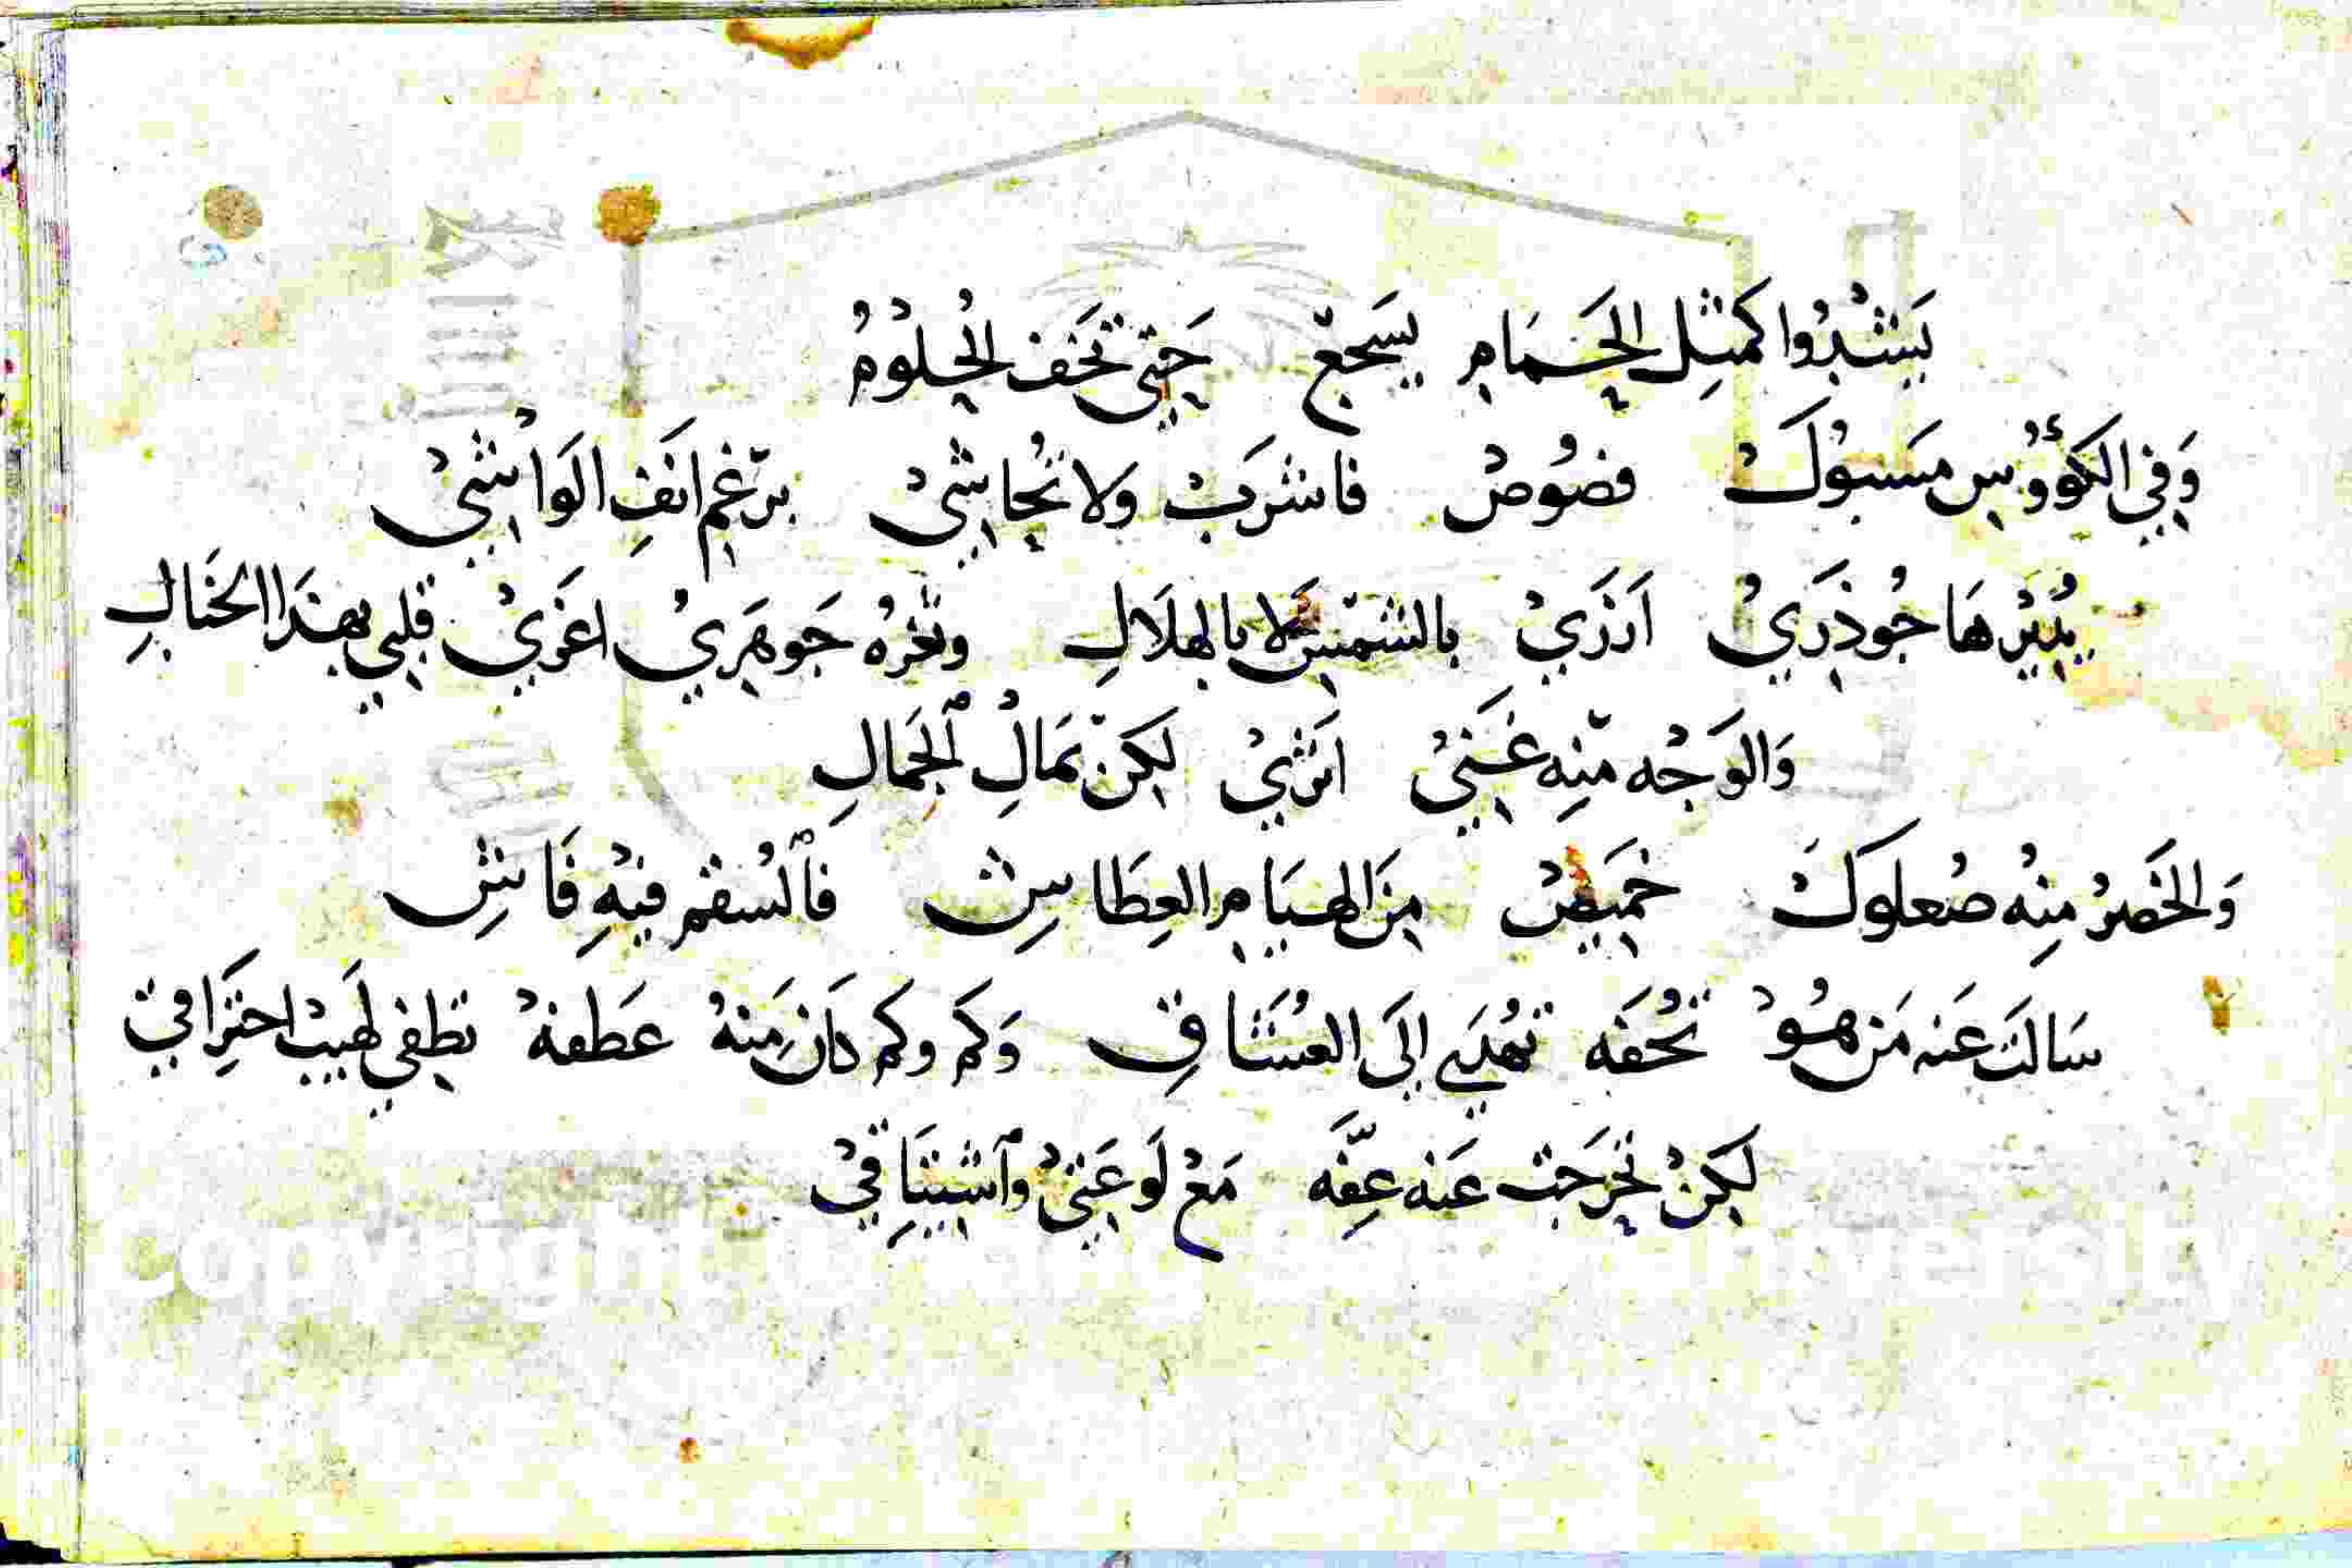 يَشْدُوا كَمثلِ الحَمَامِ يسَجع حَتى تخَف الحُلوْمُ
وَفي الكؤُوسِ مسَبوُكْ فصُوصْ فاشرَبْ ولا تحُاشيْ برَغمِ انَفِ الوَاشيْ
يُدِيْرهَا جُوذرَيُ اَزرَيْ بالشمسِ لا بالهلَالِ وثغرهُ جَوهَريُ اغرَيْ قلبي بهذَا الخبَالِ
وَالوَجْه منِه غَنيْ اثرَيْ لكِن بمَالِ ٱلجَمالِ
وَالخَصرُ منِهُ صُعلوكْ خميَصْ مِنَ الهيَامِ العِطَاشِ فٱلسُقم فيهِ فَاشِ
سَالتَ عَنه مَن هُوْ تحُفَه تهُدَي اِلىَ العُشَاقِ وَكم وكم كانَ مِنهُ عَطفهْ تطفي لهَيبْ احترَاقي
لكِنْ تخرجَت عَنه عِفَّه مَعْ لَوعَتيْ وٱشتيَاقيْ
copyright © University